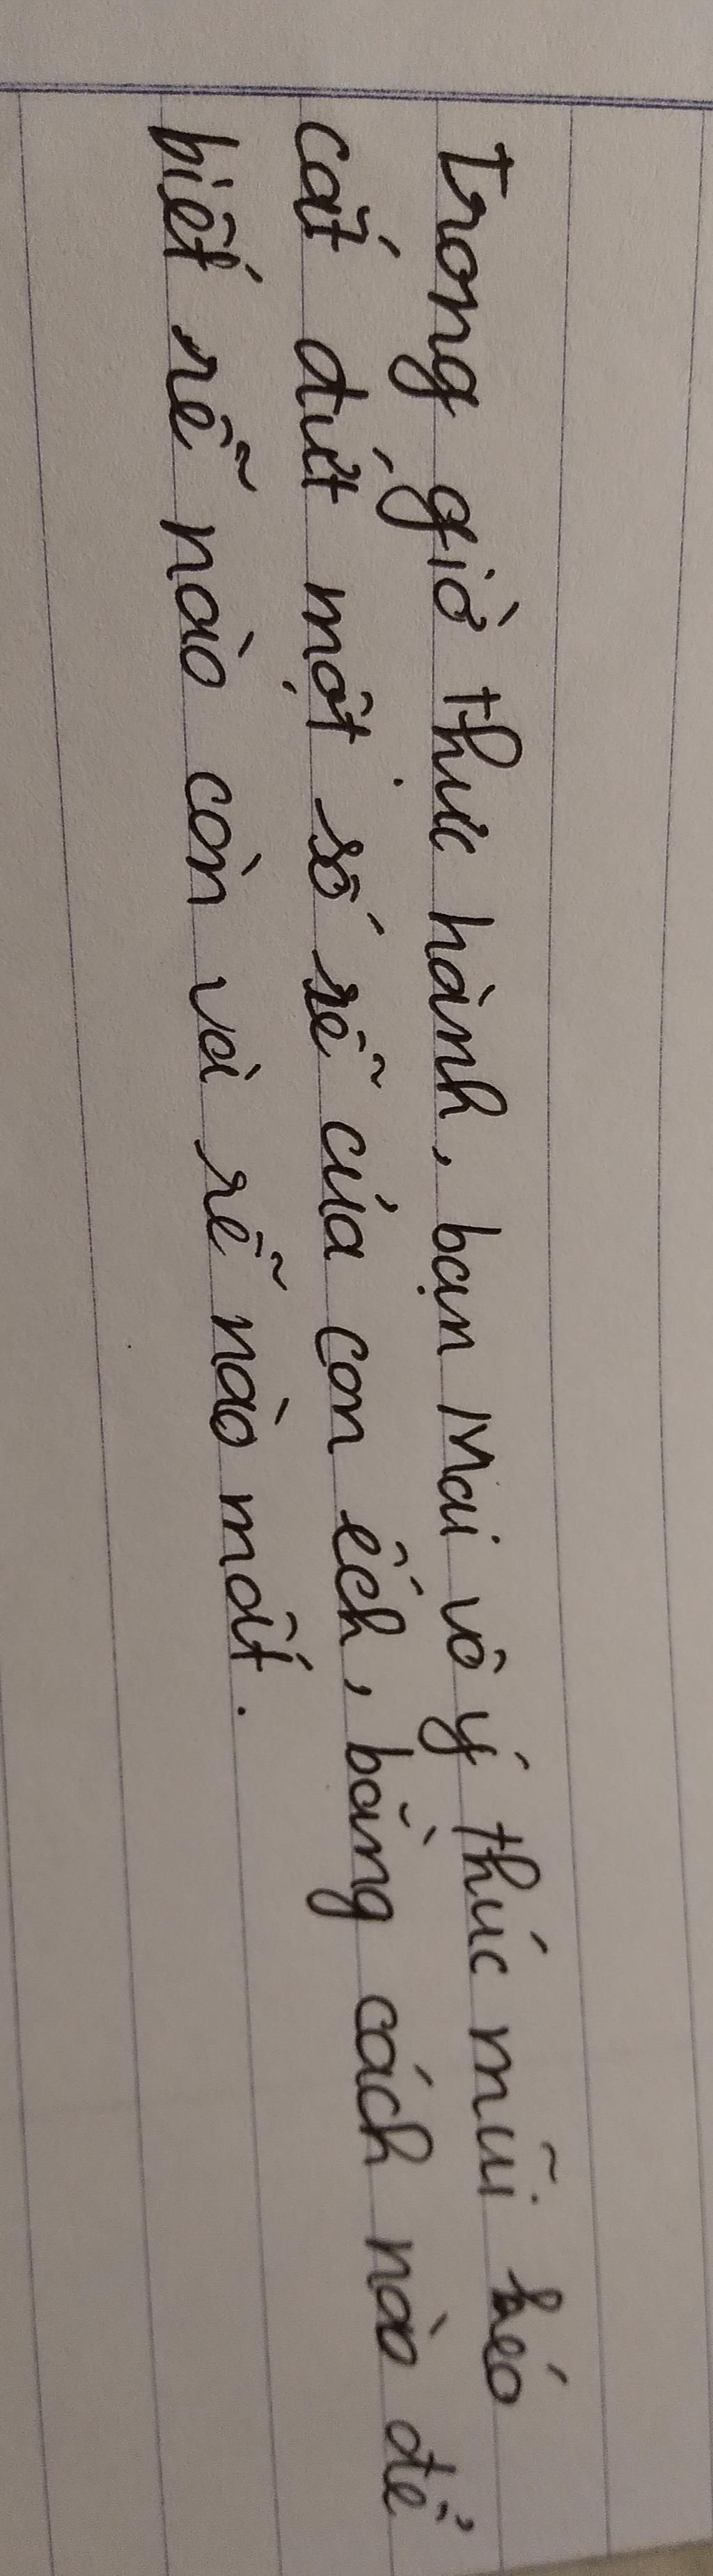 trong giờ thực hành, bạn Mai vô ý thúc mũi kéo
cắt đứt một số rễ của con ếch, bằng cách nào để
biết rễ nào còn và rễ nào mất.